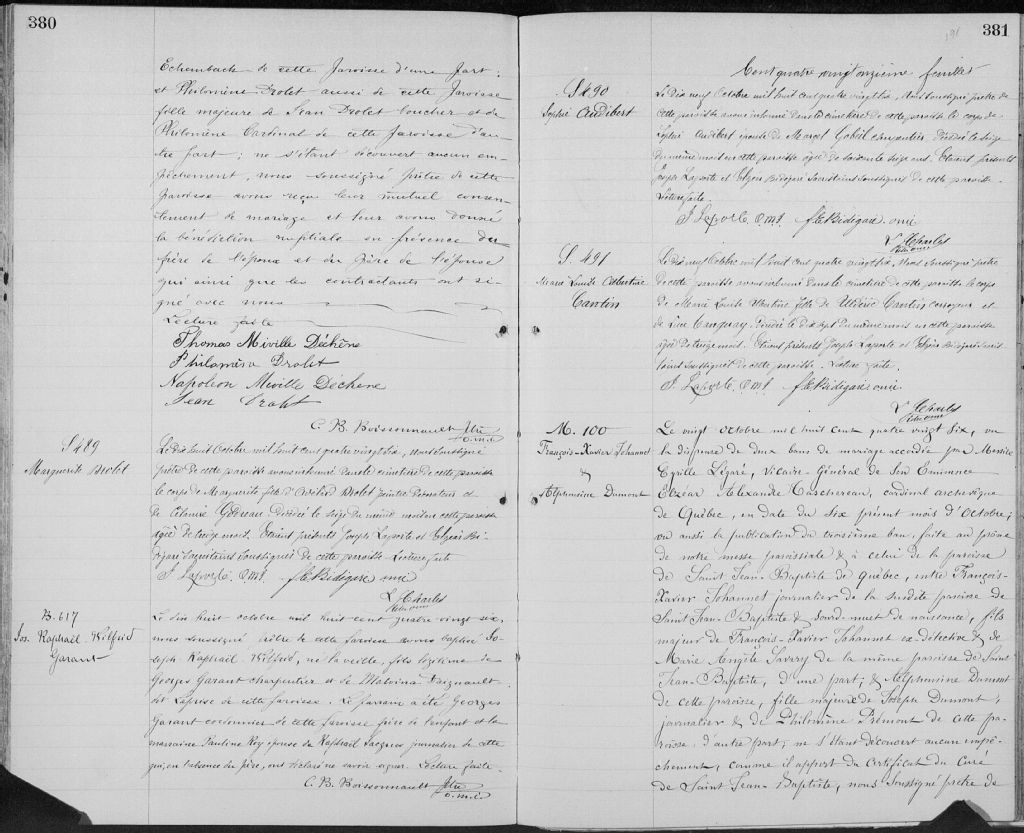 380
Echembach de cette Paroisse d'une part;
et Philomène Drolet aussi de cette Paroisse
fille majeure de Jean Drolet boucher et de
Philomène Cardinal de cette Paroisse d'au-
tre part; ne s'étant découvert aucun em-
pêchement, nous soussigné prêtre de cette
Paroisse avons reçu leur mutuel consen-
tement de mariage et leur avons donné
la bénédiction nuptiale en présence du
père de l'époux et du père de l'épouse
qui ainsi que les contractants ont si-
gné avec nous
Lecture faite
Thomas Miville Déchène
Philomèna Drolet
Napoleon Miville Déchene
Jean Drolet
C. B. Boissonnault Ptre
o.m.i.
S 489
Marguerite Drolet
Le dix huit Octobre mil huit cent quatre vingt six, Nous soussigné
prêtre de cette paroisse avons inhumé dans le cimetière de cette paroisse
le corps de Marguerite fille d'Odilard Drolet peintre Décorateur et
de Célanire Godreau décédée le seize du même mois en cette paroisse
âgée de treize mois. Etaient présents Joseph Laporte et Elzear Bi-
degaré sacristains soussignés de cette paroisse. Lecture faite
J. Laporte. O.M.I. f. E. Bidégaré omi
L. Charles
Ptre omi
B. 617
Jos. Raphaël Wilfrid
Garant
Le dix huit octobre mil huit cent quatre vingt six,
nous soussigné prêtre de cette Paroisse avons baptisé Jo-
seph Raphaël Wilfrid, né la veille, fils légitime de
Georges Garant charpentier et de Malvina Daignault
dit Laprise de cette Paroisse. Le parrain a été Georges
Garant cordonnier de cette Paroisse père de l'enfant et la
marraine Pauline Roy épouse de Raphaël Jacques journalier de cette
qui, en l'absence du père, ont déclaré ne savoir signer. Lecture faite.
C. B. Boissonnault Ptre
o.m.i.
191
381
Cent quatre vingt onzième feuillet
S 490
Sophie Audibert
Le dix neuf Octobre mil huit cent quatre vingt six, Nous soussigné prêtre de
cette paroisse avons inhumé dans le cimetière de cette paroisse le corps de
Sophie Audibert épouse de Marcel Gobeil charpentier. Décédée le seize
du même mois en cette paroisse âgée de soixante seize ans. Etaient présents
Joseph Laporte et Elzear Bidégaré Sacristains soussignés de cette paroisse.
Lecture faite.
J. Laporte O.M.I. f. E. Bidégaré. omi
L. Charles
Ptre omi
S. 491
Marie Louise Albertine
Cantin
Le dix neuf Octobre mil huit cent quatre vingt six, Nous soussigné prêtre
de cette paroisse avons inhumé dans le cimetière de cette paroisse le corps
de Marie Louise Albertine fille de Ulderic Cantin corroyeur et
de Luce Tanguay. Décédée le dix sept du même mois en cette paroisse
âgée de treize mois. Etaient présents Joseph Laporte et Elzear Bidégaré sacris-
tains soussignés de cette paroisse. Lecture faite.
J. Laporte O.M.I. f. E. Bidégaré omi.
L. Charles
Ptre omi
M. 100
François-Xavier Johannet
&
Alphonsine Dumont
Le vingt octobre mil huit cent quatre vingt six, vu
la dispense de deux bans de mariage accordée par Messire
Cyrille Légaré, Vicaire-Général de Son Eminence
Elzéar Alexandre Taschereau, cardinal archevêque
de Québec, en date du six présent mois d'Octobre;
vu aussi la publication du troisième ban, faite au prône
de notre messe paroissiale & à celui de la paroisse
de Saint Jean-Baptiste de Québec, entre François-
Xavier Johannet journalier de la susdite paroisse de
Saint Jean-Baptiste & sourd-muet de naissance, fils
majeur de François-Xavier Johannet ex-détective & de
Marie Angèle Savary de la même paroisse de Saint
Jean-Baptiste, d'une part; & Alphonsine Dumont
de cette paroisse, fille majeure de Joseph Dumont,
journalier & de Philomène Prémont de cette pa-
roisse, d'autre part; ne s'étant découvert aucun empê-
chement, comme il appert du Certificat du Curé
de Saint Jean-Baptiste, nous soussigné prêtre de